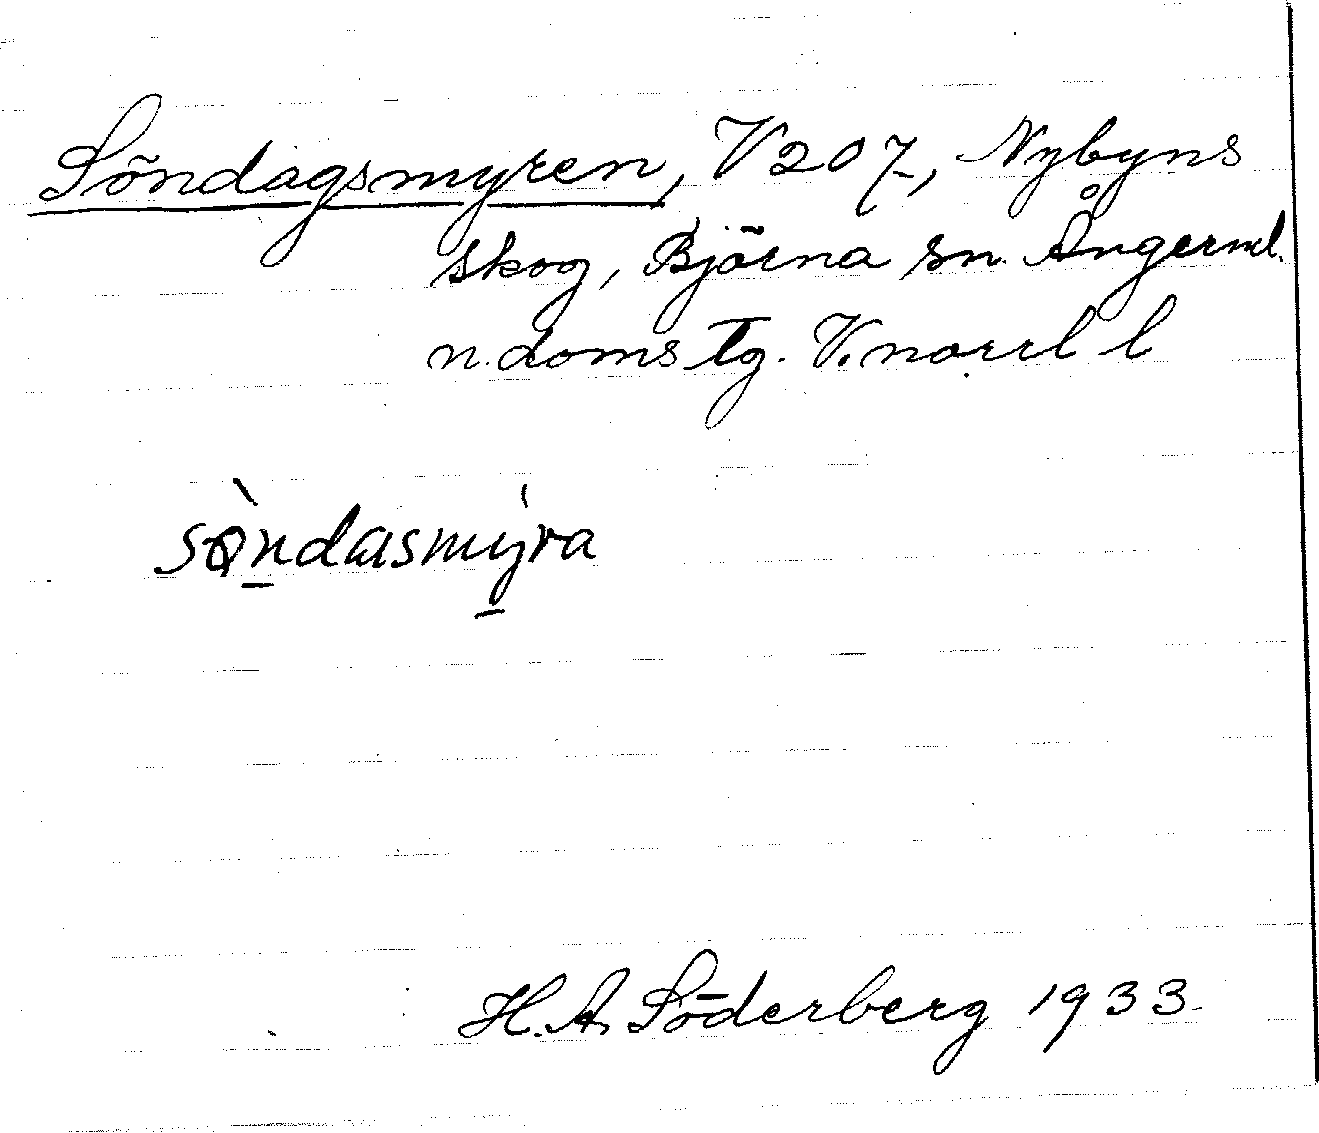 Söndagsmyren, V 207, Nybyns
skog, Björna sn. Ångerml.
n. doms tg. V. norrl l
sǫ̀ndasmýra
H. A. Söderberg 1933